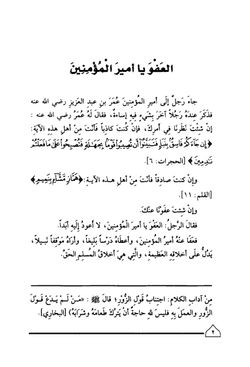 العَفْوَ يا أميرَ الْمُؤْمِنِينَ
جاءَ رَجلٌ إلى أميرِ المؤمنينَ عُمَرَ بنِ عبدِ العزيزِ رضي الله عنه
فذكرَ عندَهُ رَجُلاً آخرَ بِشَيءٍ فيهِ إساءةٌ، فقالَ لَهُ عُمَرُ رضي الله عنه :
إنْ شِئتَ نَظَرنا في أمرِكَ، فإن كُنتَ كاذباً فأنتَ مِنْ أهلِ هذهِ الآيَةِ:
﴿إِن جَاءَكُمْ فَاسِقٌ بِنَبَإٍ فَتَبَيَّنُوا أَن تُصِيبُوا قَوْمًا بِجَهَالَةٍ فَتُصْبِحُوا عَلَىٰ مَا فَعَلْتُمْ
نَادِمِينَ﴾ [الحجرات: ٦].
وإنْ كنتَ صادقاً فأنتَ مِنْ أهلِ هذه الآيةِ: ﴿هَمَّازٍ مَشَّاءٍ بِنَمِيمٍ﴾
[القلم: ١١].
وإن شِئتَ عفَونا عنْكَ.
فقالَ الرَّجلُ: العَفْوَ يا أميرَ المؤمنينَ، لا أعودُ إليهِ أبداً.
فعَفا عنْهُ أميرُ المؤمنينَ، وأعطاهُ دَرْساً بَليغاً، وأراهُ مَوقِفاً نَبيلاً،
يَدُلُّ على أخلاقِهِ العظيمةِ، والّتي هِيَ أخلاقُ المُسلِمِ الحَقِّ.
مِنْ آدابِ الكلامِ: اجتِنابُ قَولِ الزُّورِ؛ قالَ ﷺ: «مَنْ لَمْ يَدَعْ قَوْلَ
الزُّورِ والعملَ بِهِ فلَيسَ للهِ حاجةٌ أنْ يَتركَ طَعامَهُ وشَرابَهُ» [البخاري].